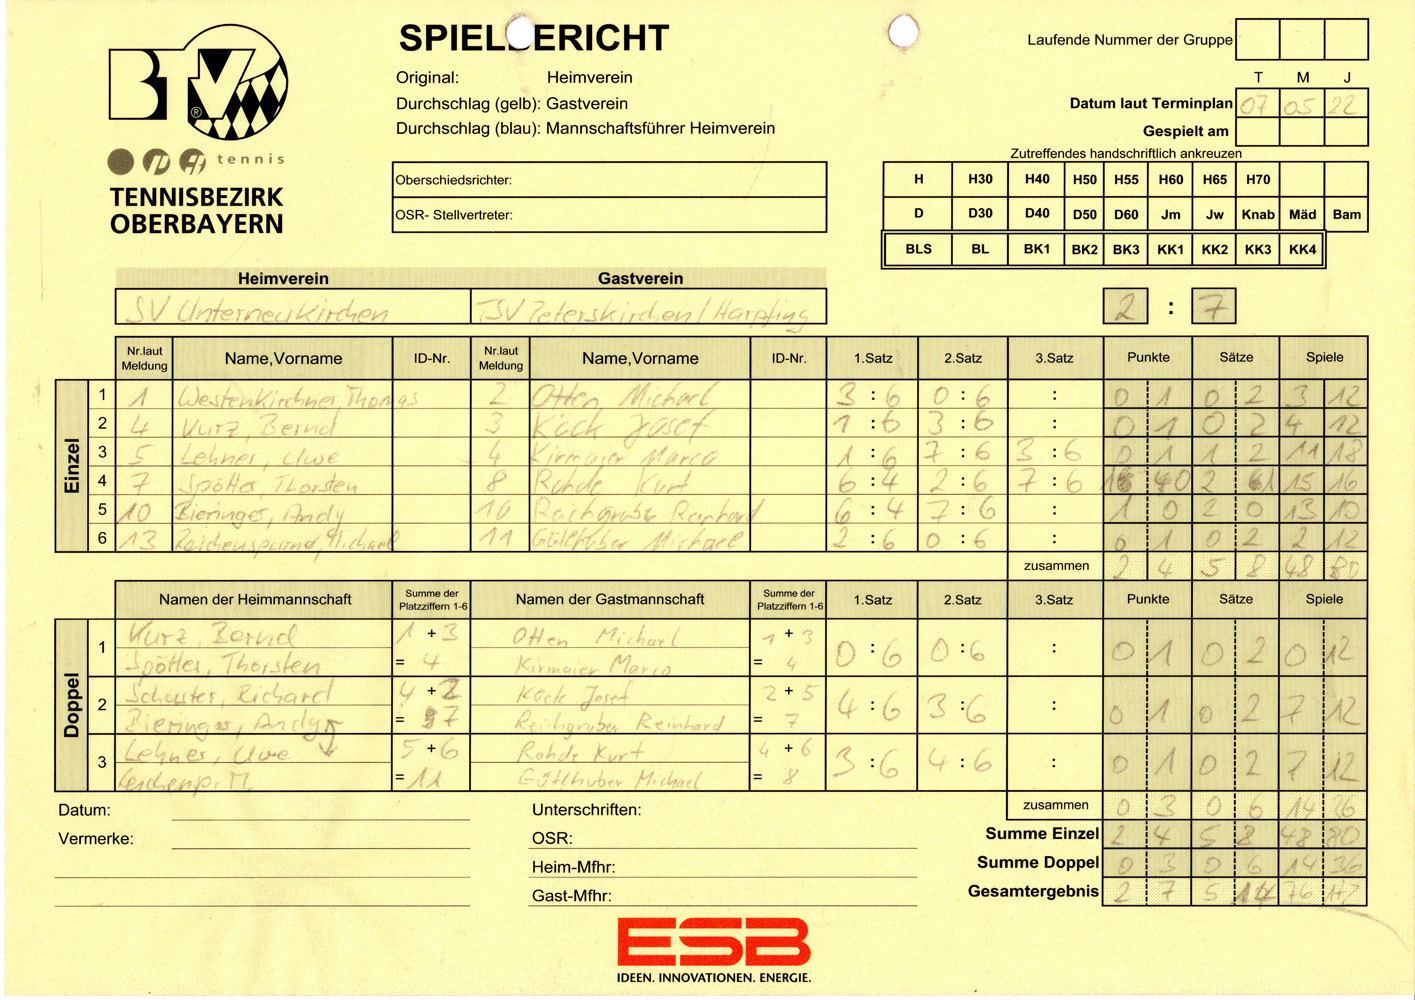 BTV
®
tennis
TENNISBEZIRK
OBERBAYERN
SPIELBERICHT
Original: Heimverein
Durchschlag (gelb): Gastverein
Durchschlag (blau): Mannschaftsführer Heimverein
Oberschiedsrichter:
OSR- Stellvertreter:
Laufende Nummer der Gruppe
T M J
Datum laut Terminplan 07 05 22
Gespielt am
Zutreffendes handschriftlich ankreuzen
H H30 H40 H50 H55 H60 H65 H70
D D30 D40 D50 D60 Jm Jw Knab Mäd Bam
BLS BL BK1 BK2 BK3 KK1 KK2 KK3 KK4
Heimverein Gastverein
SV Unterneukirchen TSV Peterskirchen/Harpfing 2 : 7
Nr.laut Meldung Name,Vorname ID-Nr. Nr.laut Meldung Name,Vorname ID-Nr. 1.Satz 2.Satz 3.Satz Punkte Sätze Spiele
Einzel
1 1 Westenkirchner, Thomas 2 Otten, Michael 3 : 6 0 : 6 : 0 1 0 2 3 12
2 4 Kurz, Bernd 3 Köck Josef 1 : 6 3 : 6 : 0 1 0 2 4 12
3 5 Lehner, Uwe 4 Kirmaier Marco 1 : 6 7 : 6 3 : 6 0 1 1 2 11 18
4 7 Spötter, Thorsten 8 Rohde Kurt 6 : 4 2 : 6 7 : 6 1 0 2 1 15 16
5 10 Bieringer, Andy 10 Reichgruber 6 : 4 7 : 6 : 1 0 2 0 13 10
6 13 Michael 11 Gütlhuber Michael 2 : 6 0 : 6 : 0 1 0 2 2 12
zusammen 2 4 5 8 48 80
Namen der Heimmannschaft Summe der Platzziffern 1-6 Namen der Gastmannschaft Summe der Platzziffern 1-6 1.Satz 2.Satz 3.Satz Punkte Sätze Spiele
Doppel
1 Kurz, Bernd 1 + 3 Otten Michael 1 + 3 0 : 6 0 : 6 : 0 1 0 2 0 12
Spötter, Thorsten = 4 Kirmaier Marco = 4
2 Schuster, Richard 4 + 2 Köck Josef 2 + 5 4 : 6 3 : 6 : 0 1 0 2 7 12
Bieringer, Andy = 7 Reichgruber Reinhard = 7
3 Lehner, Uwe 5 + 6 Rohde Kurt 4 + 6 3 : 6 4 : 6 : 0 1 0 2 7 12
M. = 11 Gütlhuber Michael = 8
zusammen 0 3 0 6 14 36
Datum: Unterschriften:
Vermerke: OSR:
Heim-Mfhr:
Gast-Mfhr:
Summe Einzel 2 4 5 8 48 80
Summe Doppel 0 3 0 6 14 36
Gesamtergebnis 2 7 5 14 76
ESB
IDEEN. INNOVATIONEN. ENERGIE.